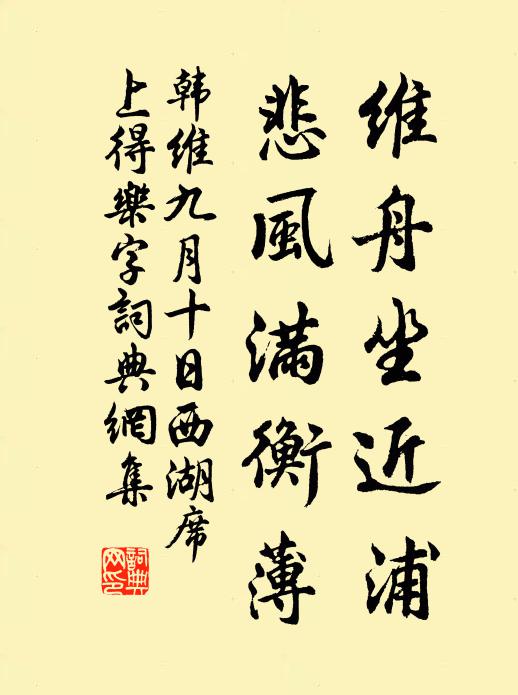 维舟坐近浦
悲風满衡薄
韩维九月十日西湖席
上得樂字詞典網集
詞典網印